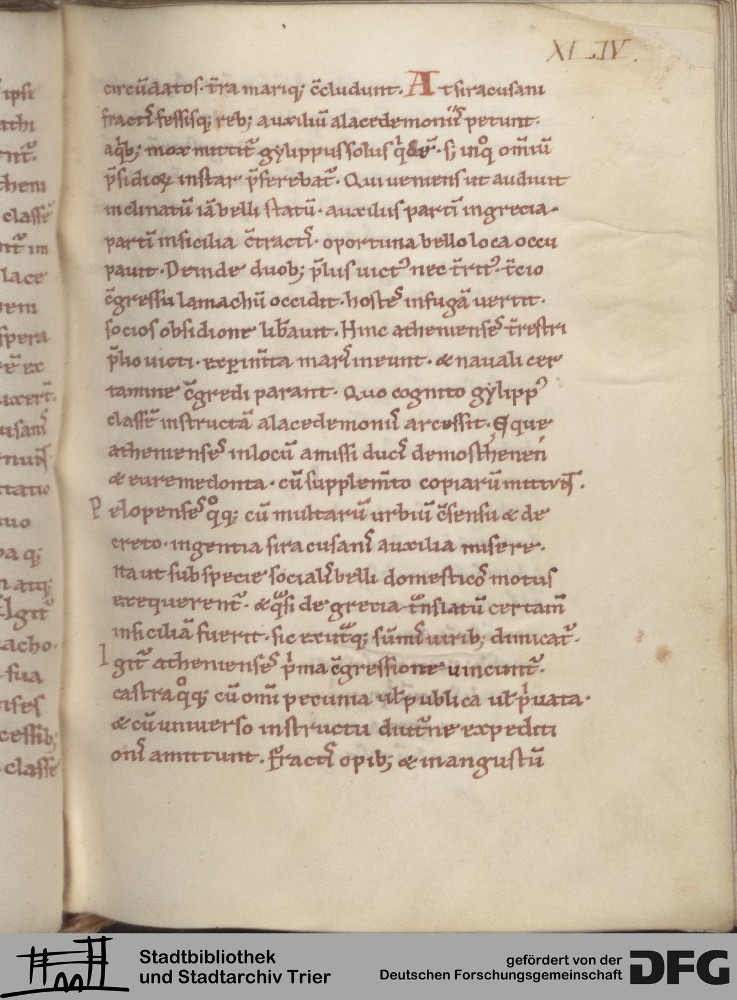 XLIV.
circūdatos· t̄ra mariq; c̄cludunt· At siracusani
fractis fessisq; reb; auxiliū a lacedemoniis petunt·
a qb; mox mittit̄ gylippus solus· s; in qͦ om̄iū
p̄sidioꝝ instar p̄ferebat̄· Qui ueniens ut audiuit
inclinatū iā belli statū· auxiliis partī in grecia·
partī in sicilia c̄tractis· oportuna bello loca occu
pauit· Deinde duob; p̄liis uictꝰ nec t̄ritꝰ· t̄cio
c̄gressu lamachū occidit· hostes in fugā uertit·
socios obsidione lib̄auit· Hinc athenienses t̄restri
p̄lio uicti· exꝑim̄ta maris ineunt· & nauali cer
tamine c̄gredi parant· Quo cognito gylippꝰ
classē instructā a lacedemoniis arcessit· Eque
athenienses in locū amissi ducis demosthenen
& euremedonta· cū supplem̄to copiarū mittunt·
Pelopenses qͦq; cū multarū urbiū c̄sensu & de
creto· ingentia siracusanis auxilia misere·
Ita ut sub specie socialis belli domesticos motus
exequerent̄· & qͣsi de grecia t̄nslatū certam̄
in siciliā fuerit· sic ex utͣq; sūmis uirib; dimicat̄·
Igit̄ athenienses p̄ma c̄gressione uincunt̄·
castra qͦq; cū om̄i pecunia ul̄ publica ul̄ pͥuata·
& cū uniuerso instructu diut̄ne expediti
onis amittunt· Fractis opib; & in angustū
Stadtbibliothek
und Stadtarchiv Trier
gefördert von der
Deutschen Forschungsgemeinschaft
DFG